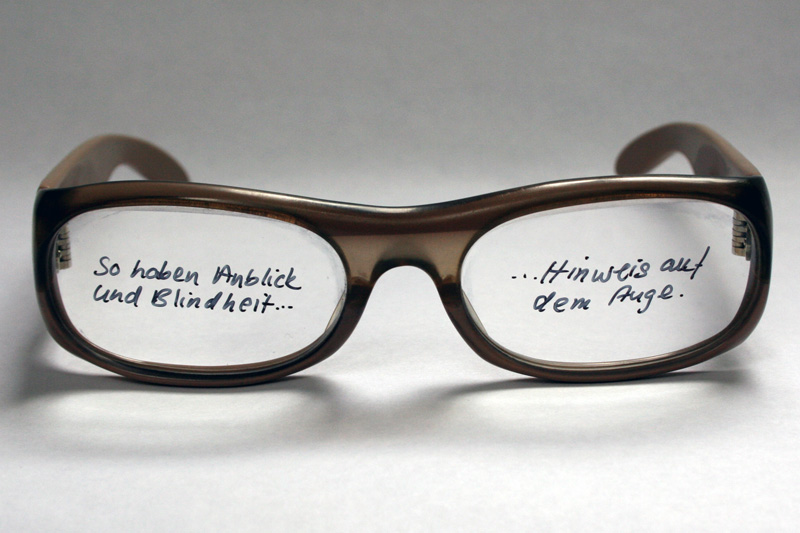 So haben Anblick
und Blindheit...
...Hinweis auf
dem Auge.